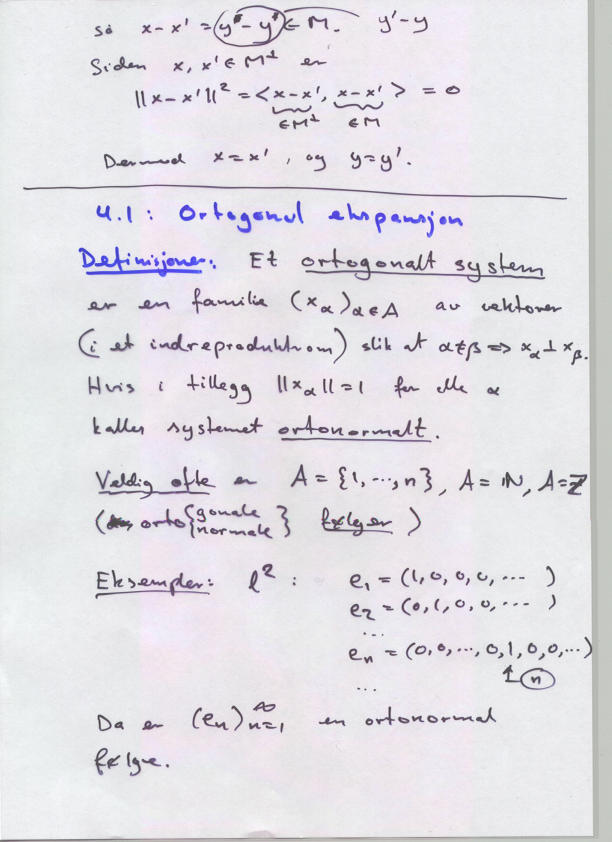 så x-x' = y'-y' ∈ M. y'-y
Siden x, x' ∈ M⊥ er
||x-x'||² = <x-x', x-x'> = 0
∈M⊥ ∈M
Dermed x=x', og y=y'.
4.1: Ortogonal ekspansjon
Definisjoner: Et ortogonalt system
er en familie (xα)α∈A av vektorer
(i et indreproduktrom) slik at α≠β ⇒ xα⊥xβ.
Hvis i tillegg ||xα||=1 for alle α
kalles systemet ortonormalt.
Veldig ofte er A = {1,...,n}, A = ℕ, A = ℤ
(orto{gonale normale} følger)
Eksempler: ℓ²: e₁ = (1,0,0,0,... )
e₂ = (0,1,0,0,... )
...
eₙ = (0,0,...,0,1,0,0,...)
n
...
Da er (eₙ)ₙ₌₁^∞ en ortonormal
følge.